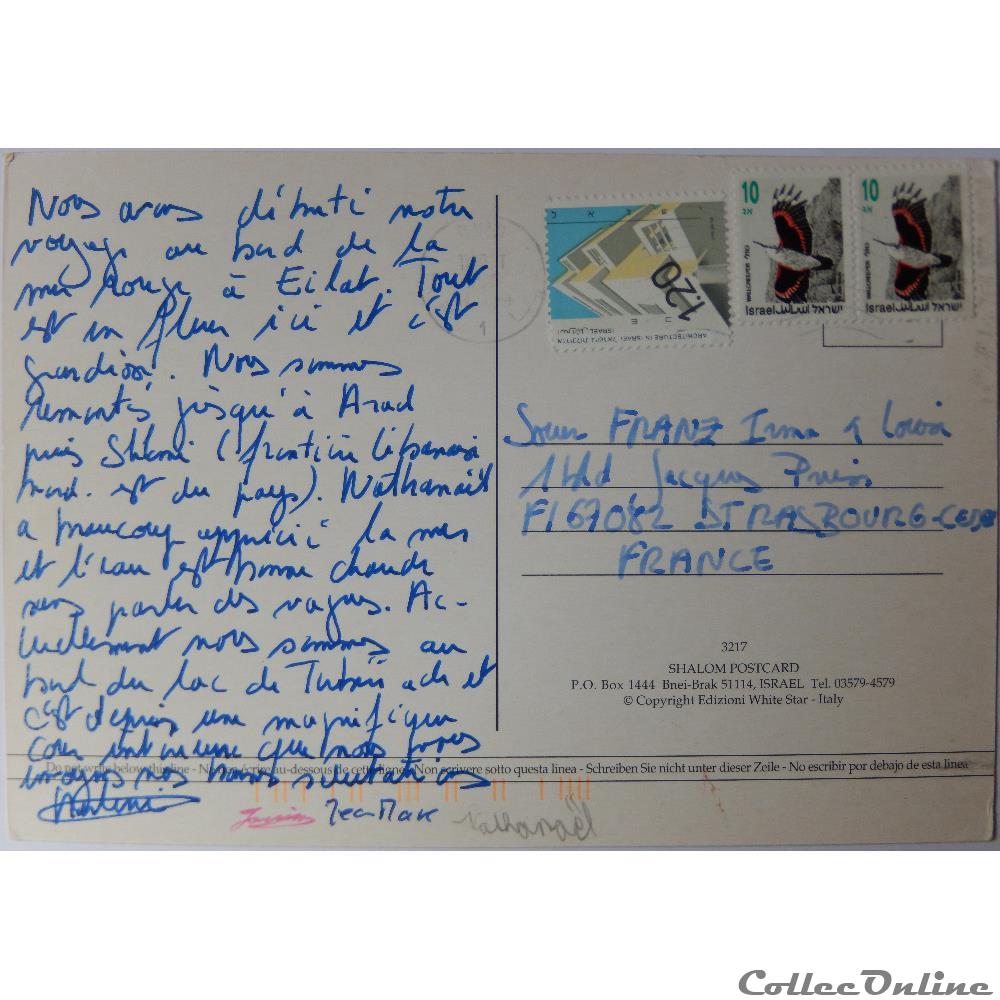 Nous avons débuté notre
voyage au bord de la
mer Rouge à Eilat. Tout
est en fleur ici et c'est
grandiose. Nous sommes
remontés jusqu'à Arad
puis Shlomi (frontière libanaise
nord-est du pays). Nathanaël
a beaucoup apprécié la mer
et l'eau est bonne chaude
sans parler des vagues. Ac-
tuellement nous sommes au
bord du lac de Tibériade et
c'est depuis une magnifique
cour intérieure que nous vous
envoyons nos bonnes salutations
Jean Marc Nathanaël
1.20
ARCHITECTURE IN ISRAEL
10
WALLCREEPER
Israel إسرائيل ישראל
10
WALLCREEPER
Israel إسرائيل ישראל
Soeur FRANZ Irma
1 bld Jacques
F 67082 STRASBOURG-CEDEX
FRANCE
3217
SHALOM POSTCARD
P.O. Box 1444 Bnei-Brak 51114, ISRAEL Tel. 03579-4579
© Copyright Edizioni White Star - Italy
Do not write below this line - Ne rien écrire au-dessous de cette ligne - Non scrivere sotto questa linea - Schreiben Sie nicht unter dieser Zeile - No escribir por debajo de esta linea
CollecOnline